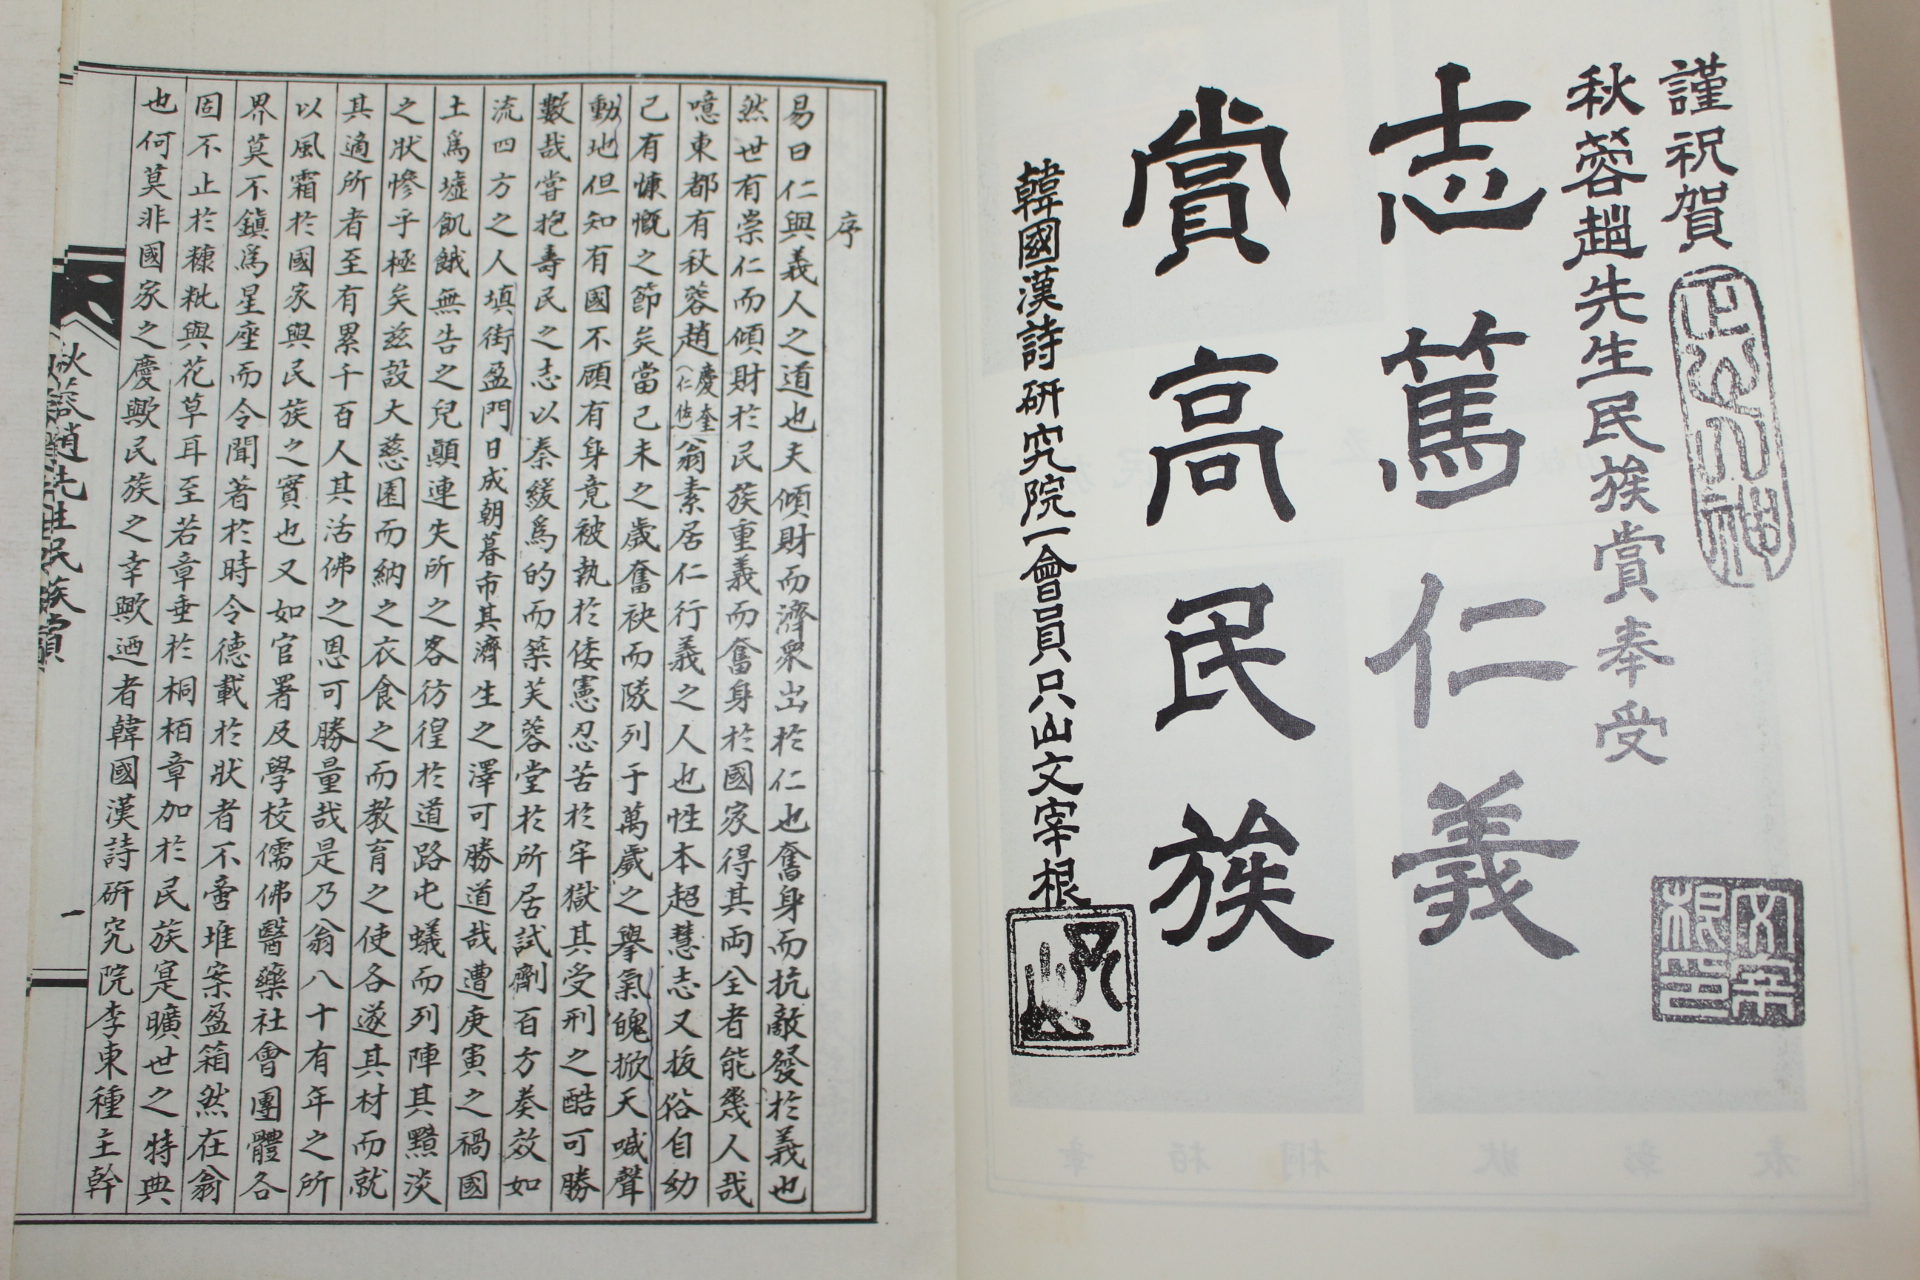 謹祝賀
秋蓉趙先生民族賞奉受
志篤仁義
賞高民族
韓國漢詩硏究院一會員只山文宰根
文宰根印
只山
序
易曰仁與義人之道也夫傾財而濟衆出於仁也奮身而抗敵發於義也
然世有崇仁而傾財於民族重義而奮身於國家得其兩全者能幾人哉
噫東都有秋蓉趙慶奎(仁佐)翁素居仁行義之人也性本超慧志又拔俗自幼
已有慷慨之節矣當己未之歲奮袂而隊列于萬歲之擧氣魄掀天喊聲
動地但知有國不顧有身竟被執於倭憲忍苦於牢獄其受刑之酷可勝
數哉嘗抱壽民之志以秦緩爲的而築芙蓉堂於所居試劑百方奏效如
流四方之人塡街盈門日成朝暮市其濟生之澤可勝道哉遭庚寅之禍國
土爲墟飢餓無告之兒顚連失所之客彷徨於道路屯蟻而列陣其黯淡
之狀慘乎極矣玆設大慈園而納之衣食之而敎育之使各遂其材而就
其適所者至有累千百人其活佛之恩可勝量哉是乃翁八十有年之所
以風霜於國家與民族之實也又如官署及學校儒佛醫藥社會團體各
界莫不鎭爲星座而令聞著於時令德載於狀者不啻堆案盈箱然在翁
固不止於糠粃與花草耳至若章垂於桐栢章加於民族寔曠世之特典
也何莫非國家之慶歟民族之幸歟迺者韓國漢詩硏究院李東種主幹
秋蓉趙先生民族賞
一